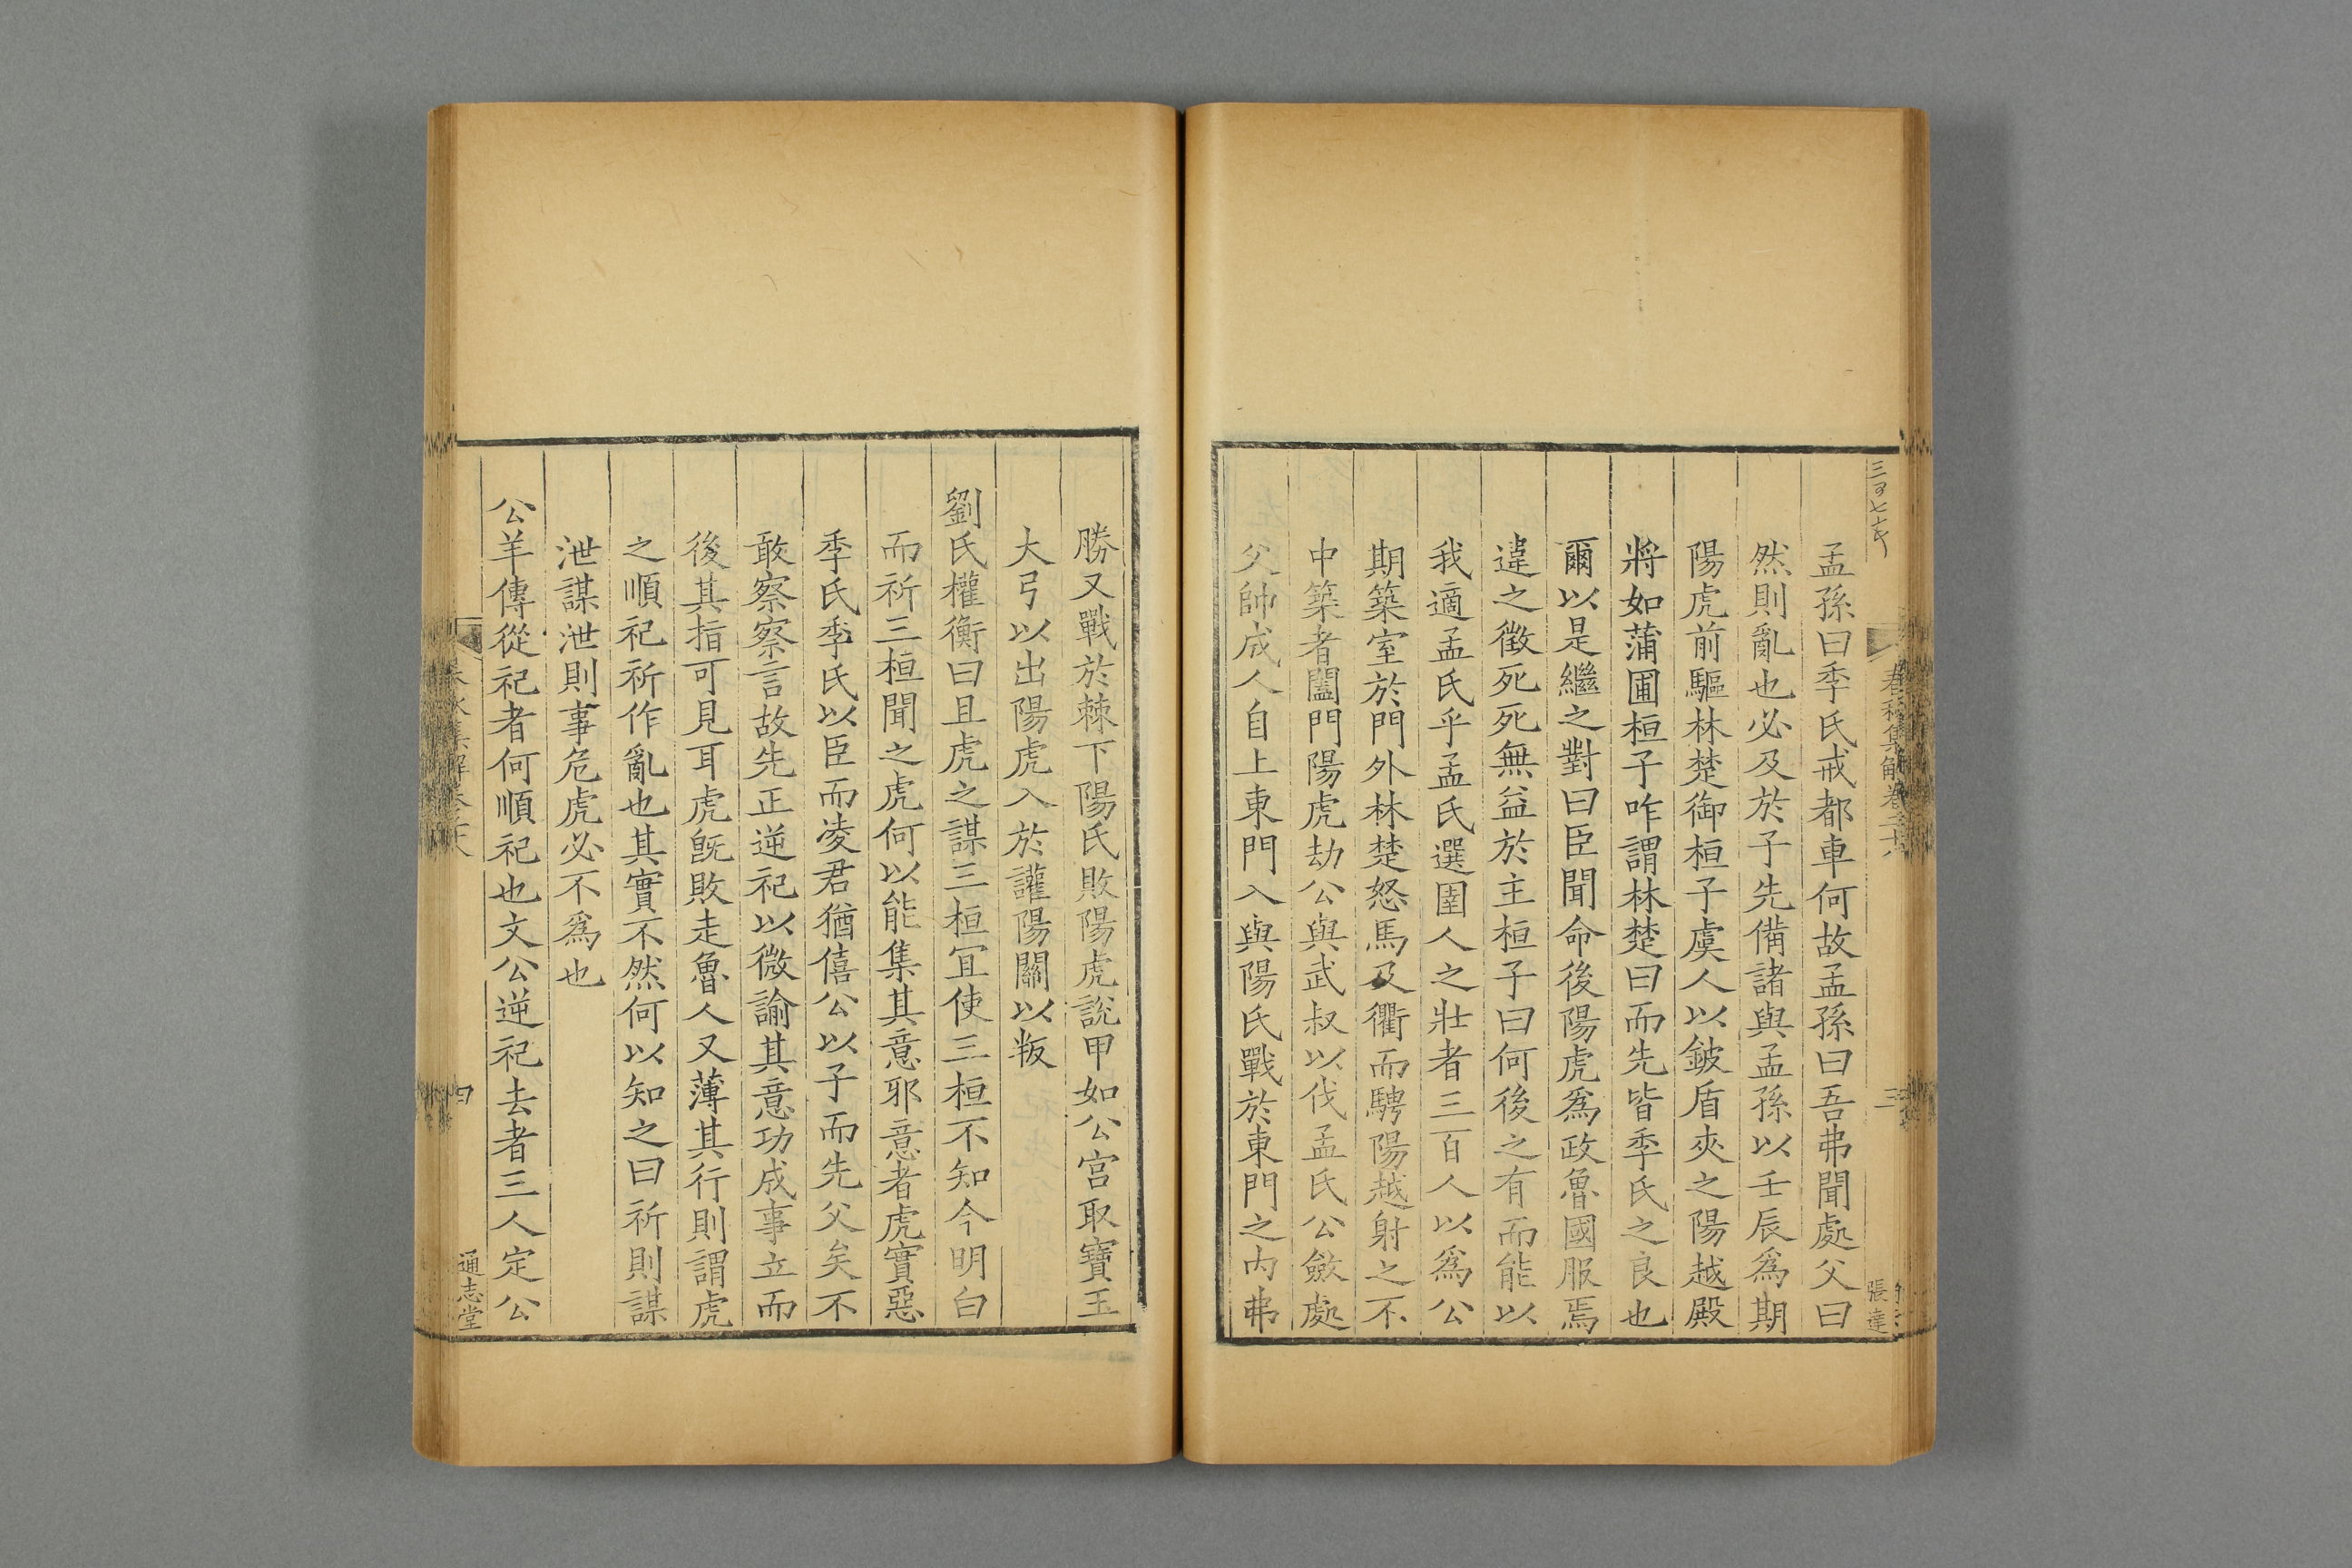 孟孫曰季氏戒都車何故孟孫曰吾弗聞處父曰
然則亂也必及於子先備諸與孟孫以壬辰爲期
陽虎前驅林楚御桓子虞人以鈹盾夾之陽越殿
將如蒲圃桓子咋謂林楚曰而先皆季氏之良也
爾以是繼之對曰臣聞命後陽虎爲政魯國服焉
違之徵死死無益於主桓子曰何後之有而能以
我適孟氏乎孟氏選圉人之壯者三百人以爲公
期築室於門外林楚怒馬及衢而騁陽越射之不
中築者闔門陽虎劫公與武叔以伐孟氏公斂處
父帥成人自上東門入與陽氏戰於東門之内弗
春秋集解卷二十八
三
張達
勝又戰於棘下陽氏敗陽虎說甲如公宫取寶玉
大弓以出陽虎入於讙陽關以叛
劉氏權衡曰且虎之謀三桓宜使三桓不知今明白
而祈三桓聞之虎何以能集其意邪意者虎實惡
季氏季氏以臣而凌君猶僖公以子而先父矣不
敢察察言故先正逆祀以微諭其意功成事立而
後其指可見耳虎旣敗走魯人又薄其行則謂虎
之順祀祈作亂也其實不然何以知之曰祈則謀
泄謀泄則事危虎必不爲也
公羊傳從祀者何順祀也文公逆祀去者三人定公
四
通志堂